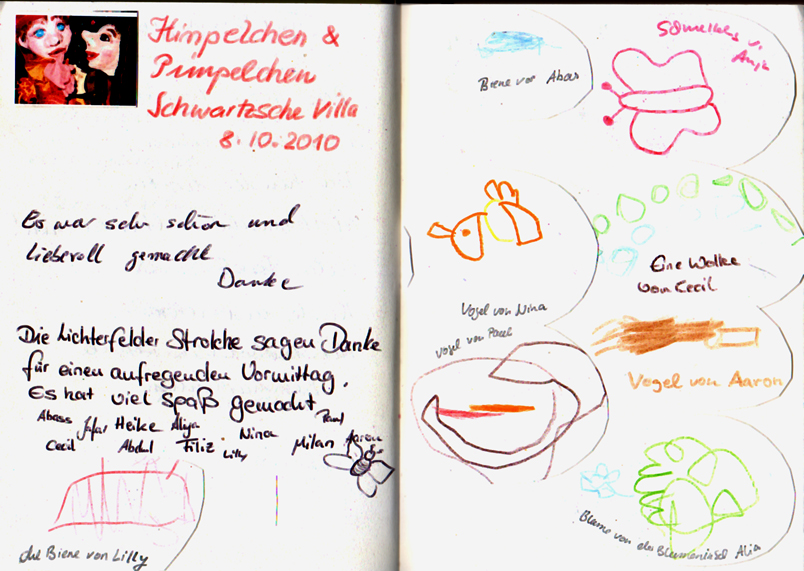 Himpelchen &
Pimpelchen
Schwartzsche Villa
8.10.2010
Es war sehr schön und
liebevoll gemacht
Danke
Die Lichterfelder Strolche sagen Danke
für einen aufregenden Vormittag.
Es hat viel Spaß gemacht
Abass Jafar Heike Aliya Paul
Cecil Abdul Filiz Lilly Nina Milan Aaron
die Biene von Lilly
Biene von Abas
Vogel von Nina
Vogel von Paul
Eine Wolke
von Cecil
Vogel von Aaron
Blume von der Blumeninsel Alia